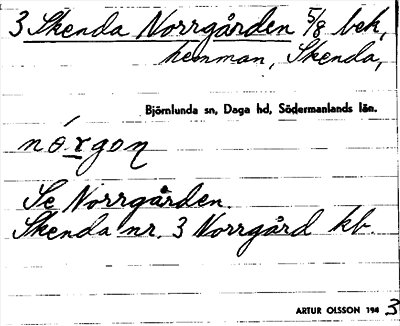 3 Skenda Norrgården 5/8 bek,
hemman, Skenda,
Björnlunda sn, Daga hd, Södermanlands län.
nórgoɲ
Se Norrgården.
Skenda nr. 3 Norrgård kb.
ARTUR OLSSON 194 3